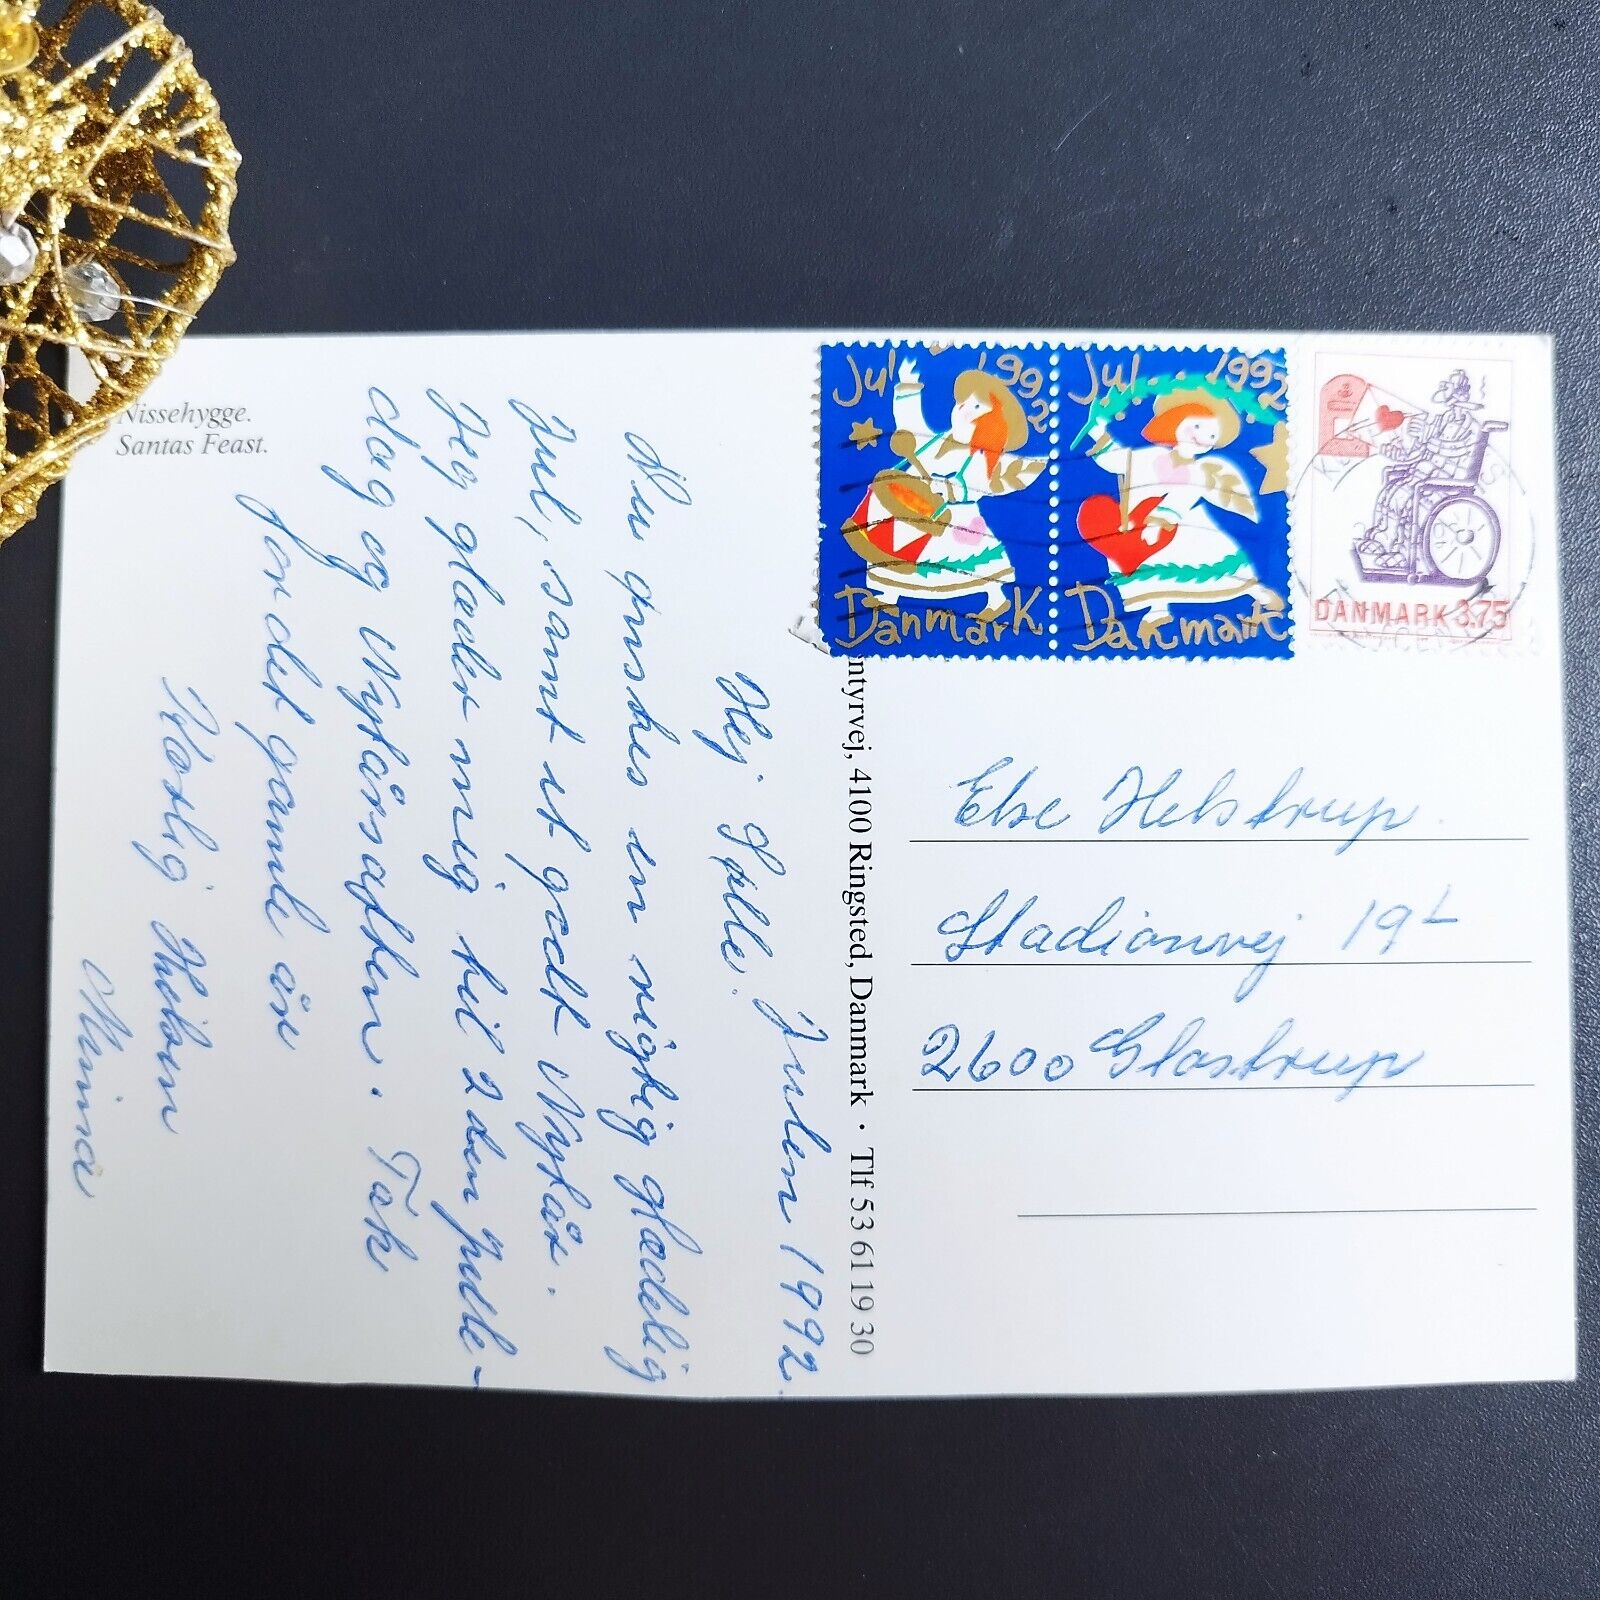 Nissehygge.
Santas Feast.
Julen 1992.
Hej Sølle.
Nu ønskes en rigtig glædelig
Jul, samt et godt Nytår.
Jeg glæder mig til 2den Jule-
dag og Nytårsaften. Tak
for det gamle år
Kærlig Hilsen
Minna
ntyrvej, 4100 Ringsted, Danmark · Tlf 53 61 19 30
Jul 1992
Danmark
Jul 1992
Danmark
DANMARK 3.75
Else Helstrup.
Stadionvej 19
2600 Glostrup